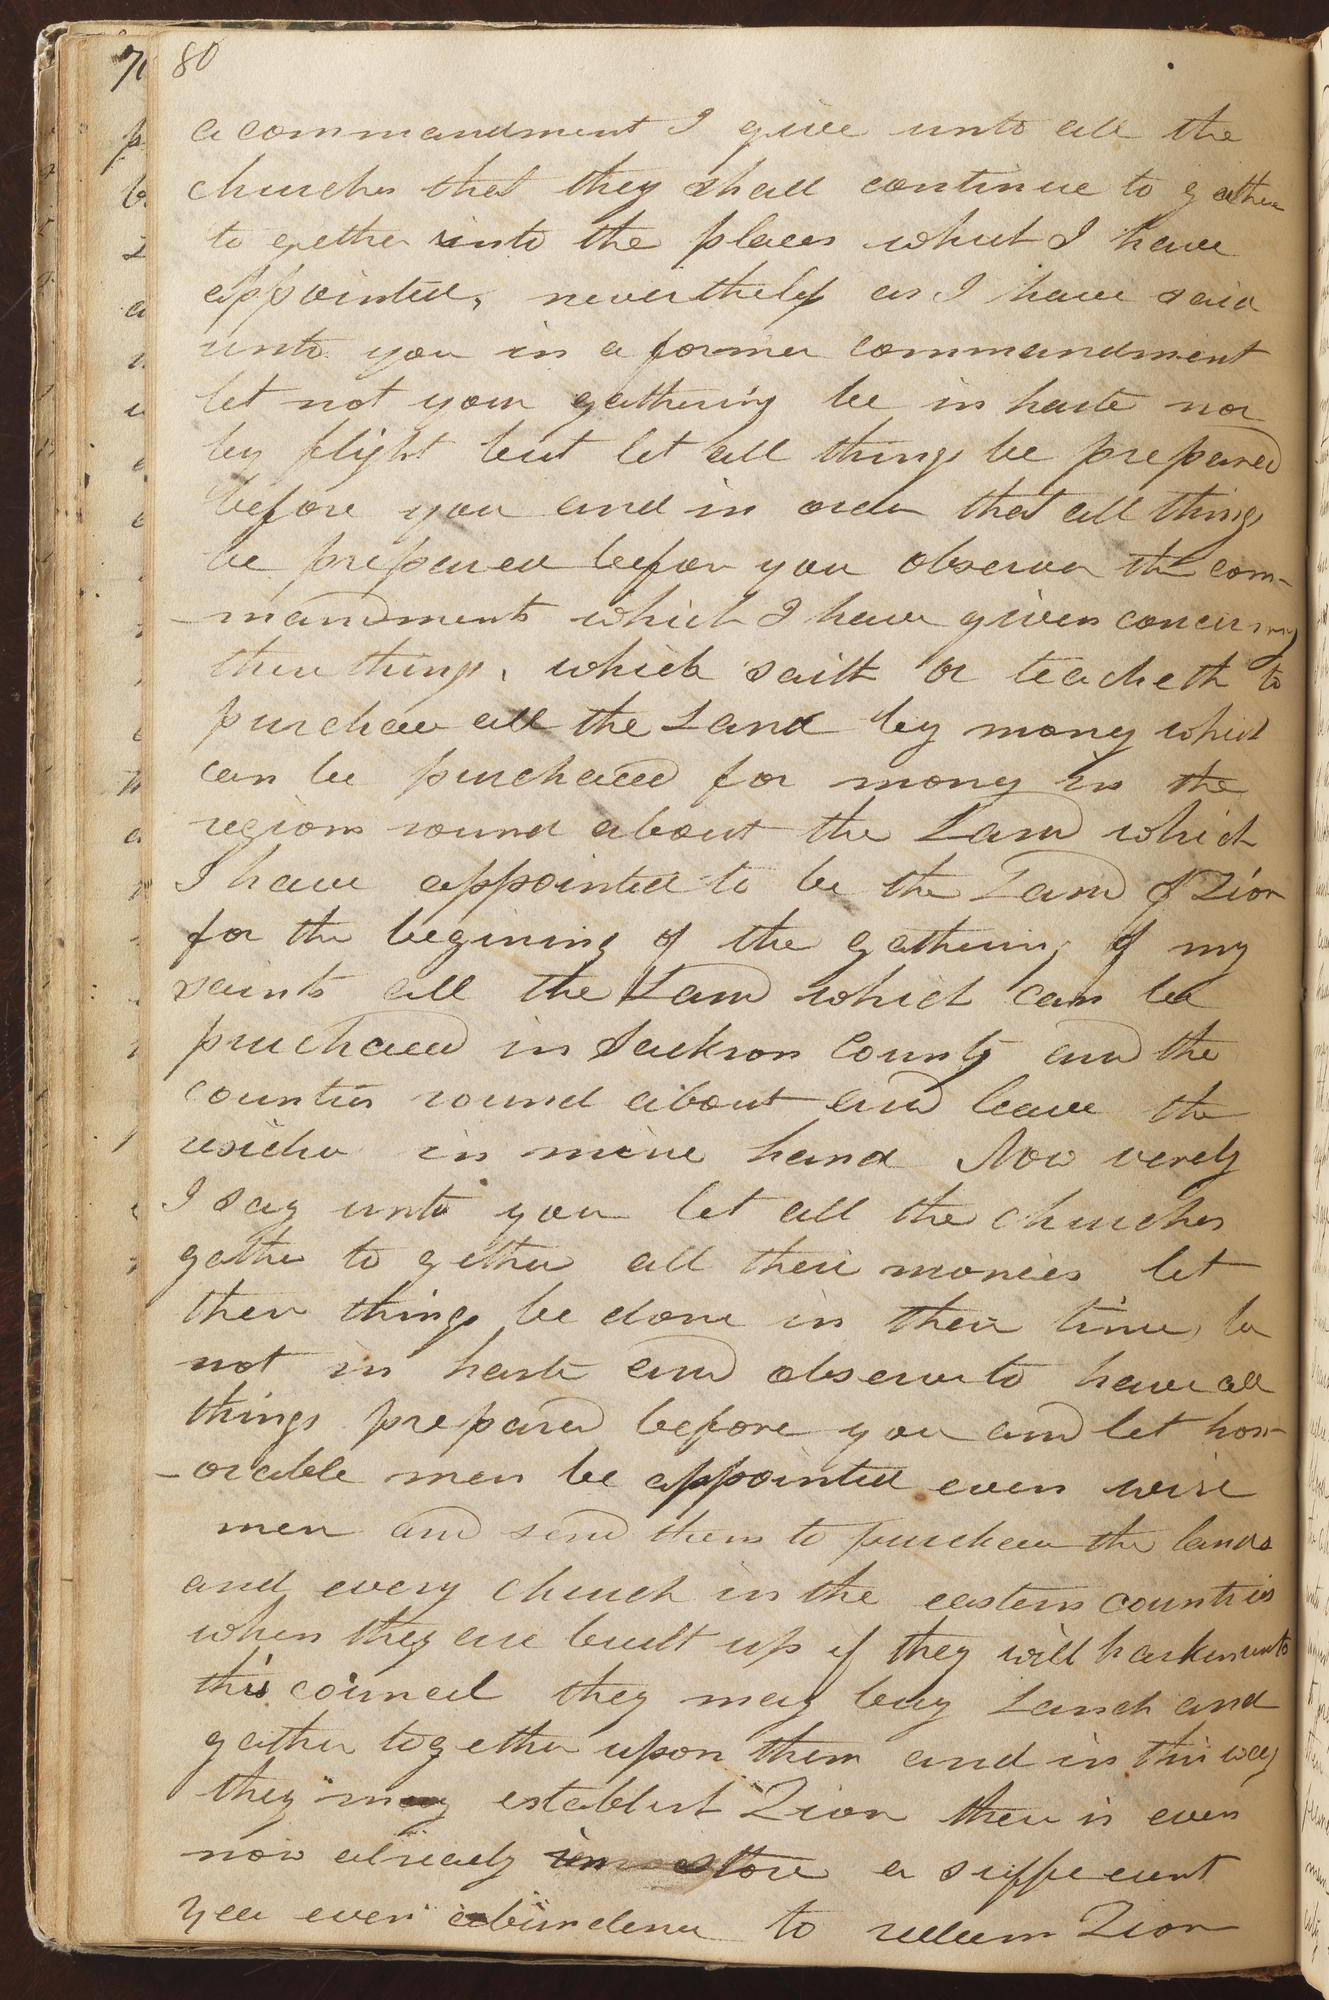 80
a commandment I give unto all the
churches that they shall continue to gather
to gether unto the places which I have
appointed, nevertheless as I have said
unto you in a former commandment
let not your gathering be in haste nor
by flight but let all things be prepared
before you and in order that all things
be prepared before you observe the com-
-mandments which I have given concerning
these things, which saith or teacheth to
purchase all the Land by mony which
can be purchased for mony in the
regions round about the Land which
I have appointed to be the Land of Zion
for the begining of the gathering of my
saints all the Land which can be
purchased in Jackson County and the
counties round about and leave the
residue in mine hand Now verely
I say unto you let all the churches
gather to gether all their monies let
these things be done in their time, be
not in haste and observe to have all
things prepared before you and let hon-
-orable men be appointed even wise
men and send them to purchase the lands
and every church in the eastern countries
when they are built up if they will harken unto
this council they may buy Lands and
gather together upon them and in this way
they may establish Zion there is even
now already in store a sufficient
yea even abundance to redeem Zion